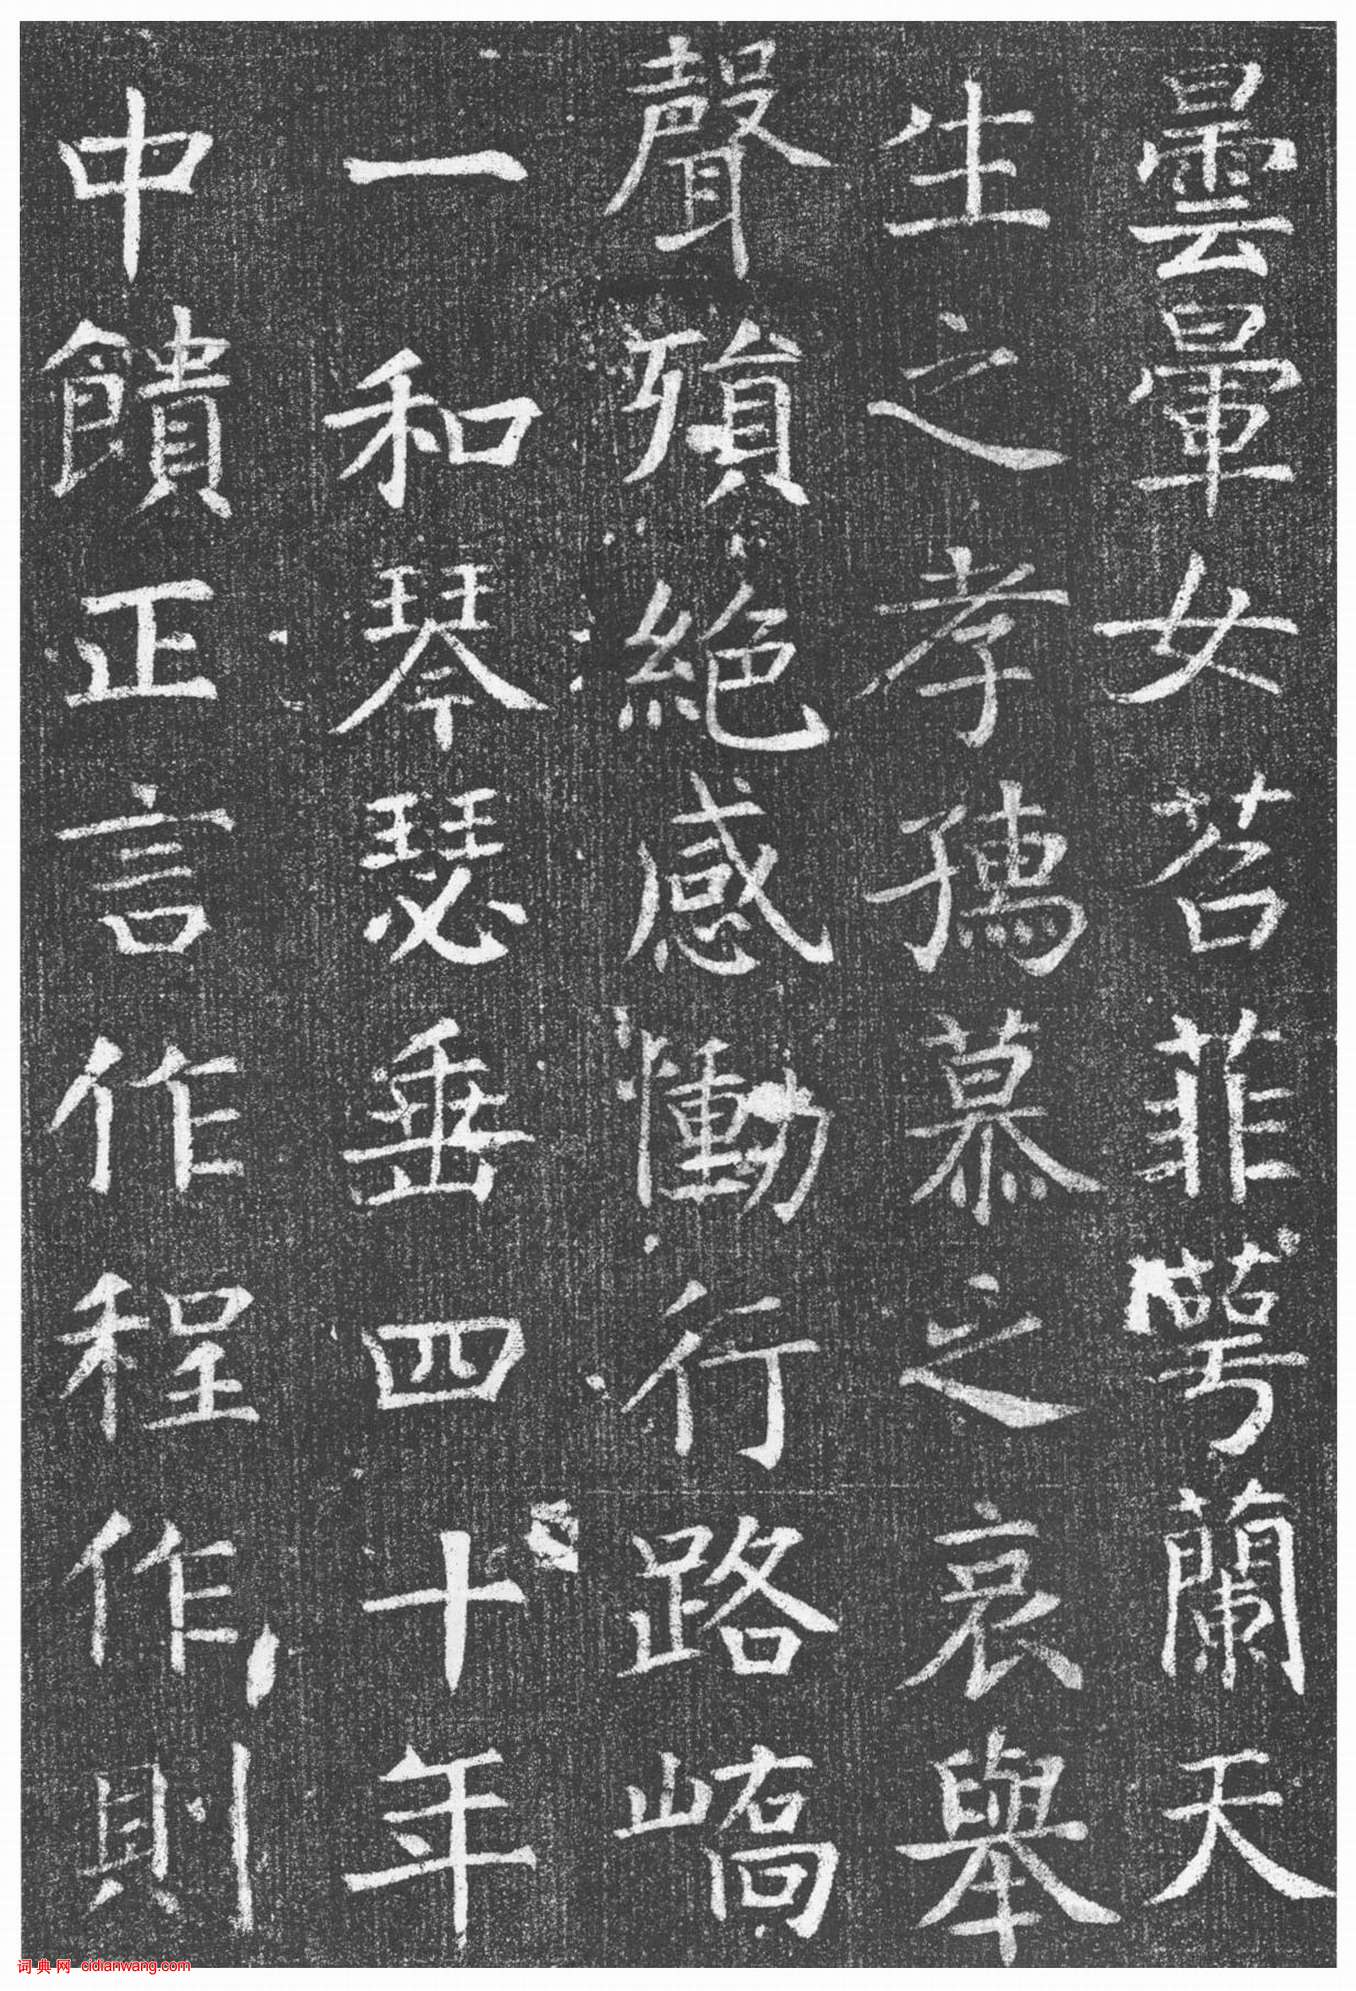 曇暈女苕菲萼蘭天
生之孝孺慕之哀舉
聲殞絕感慟行路嶠
一和琴瑟垂四十年
中饋正言作程作則
词典网 cidianwang.com